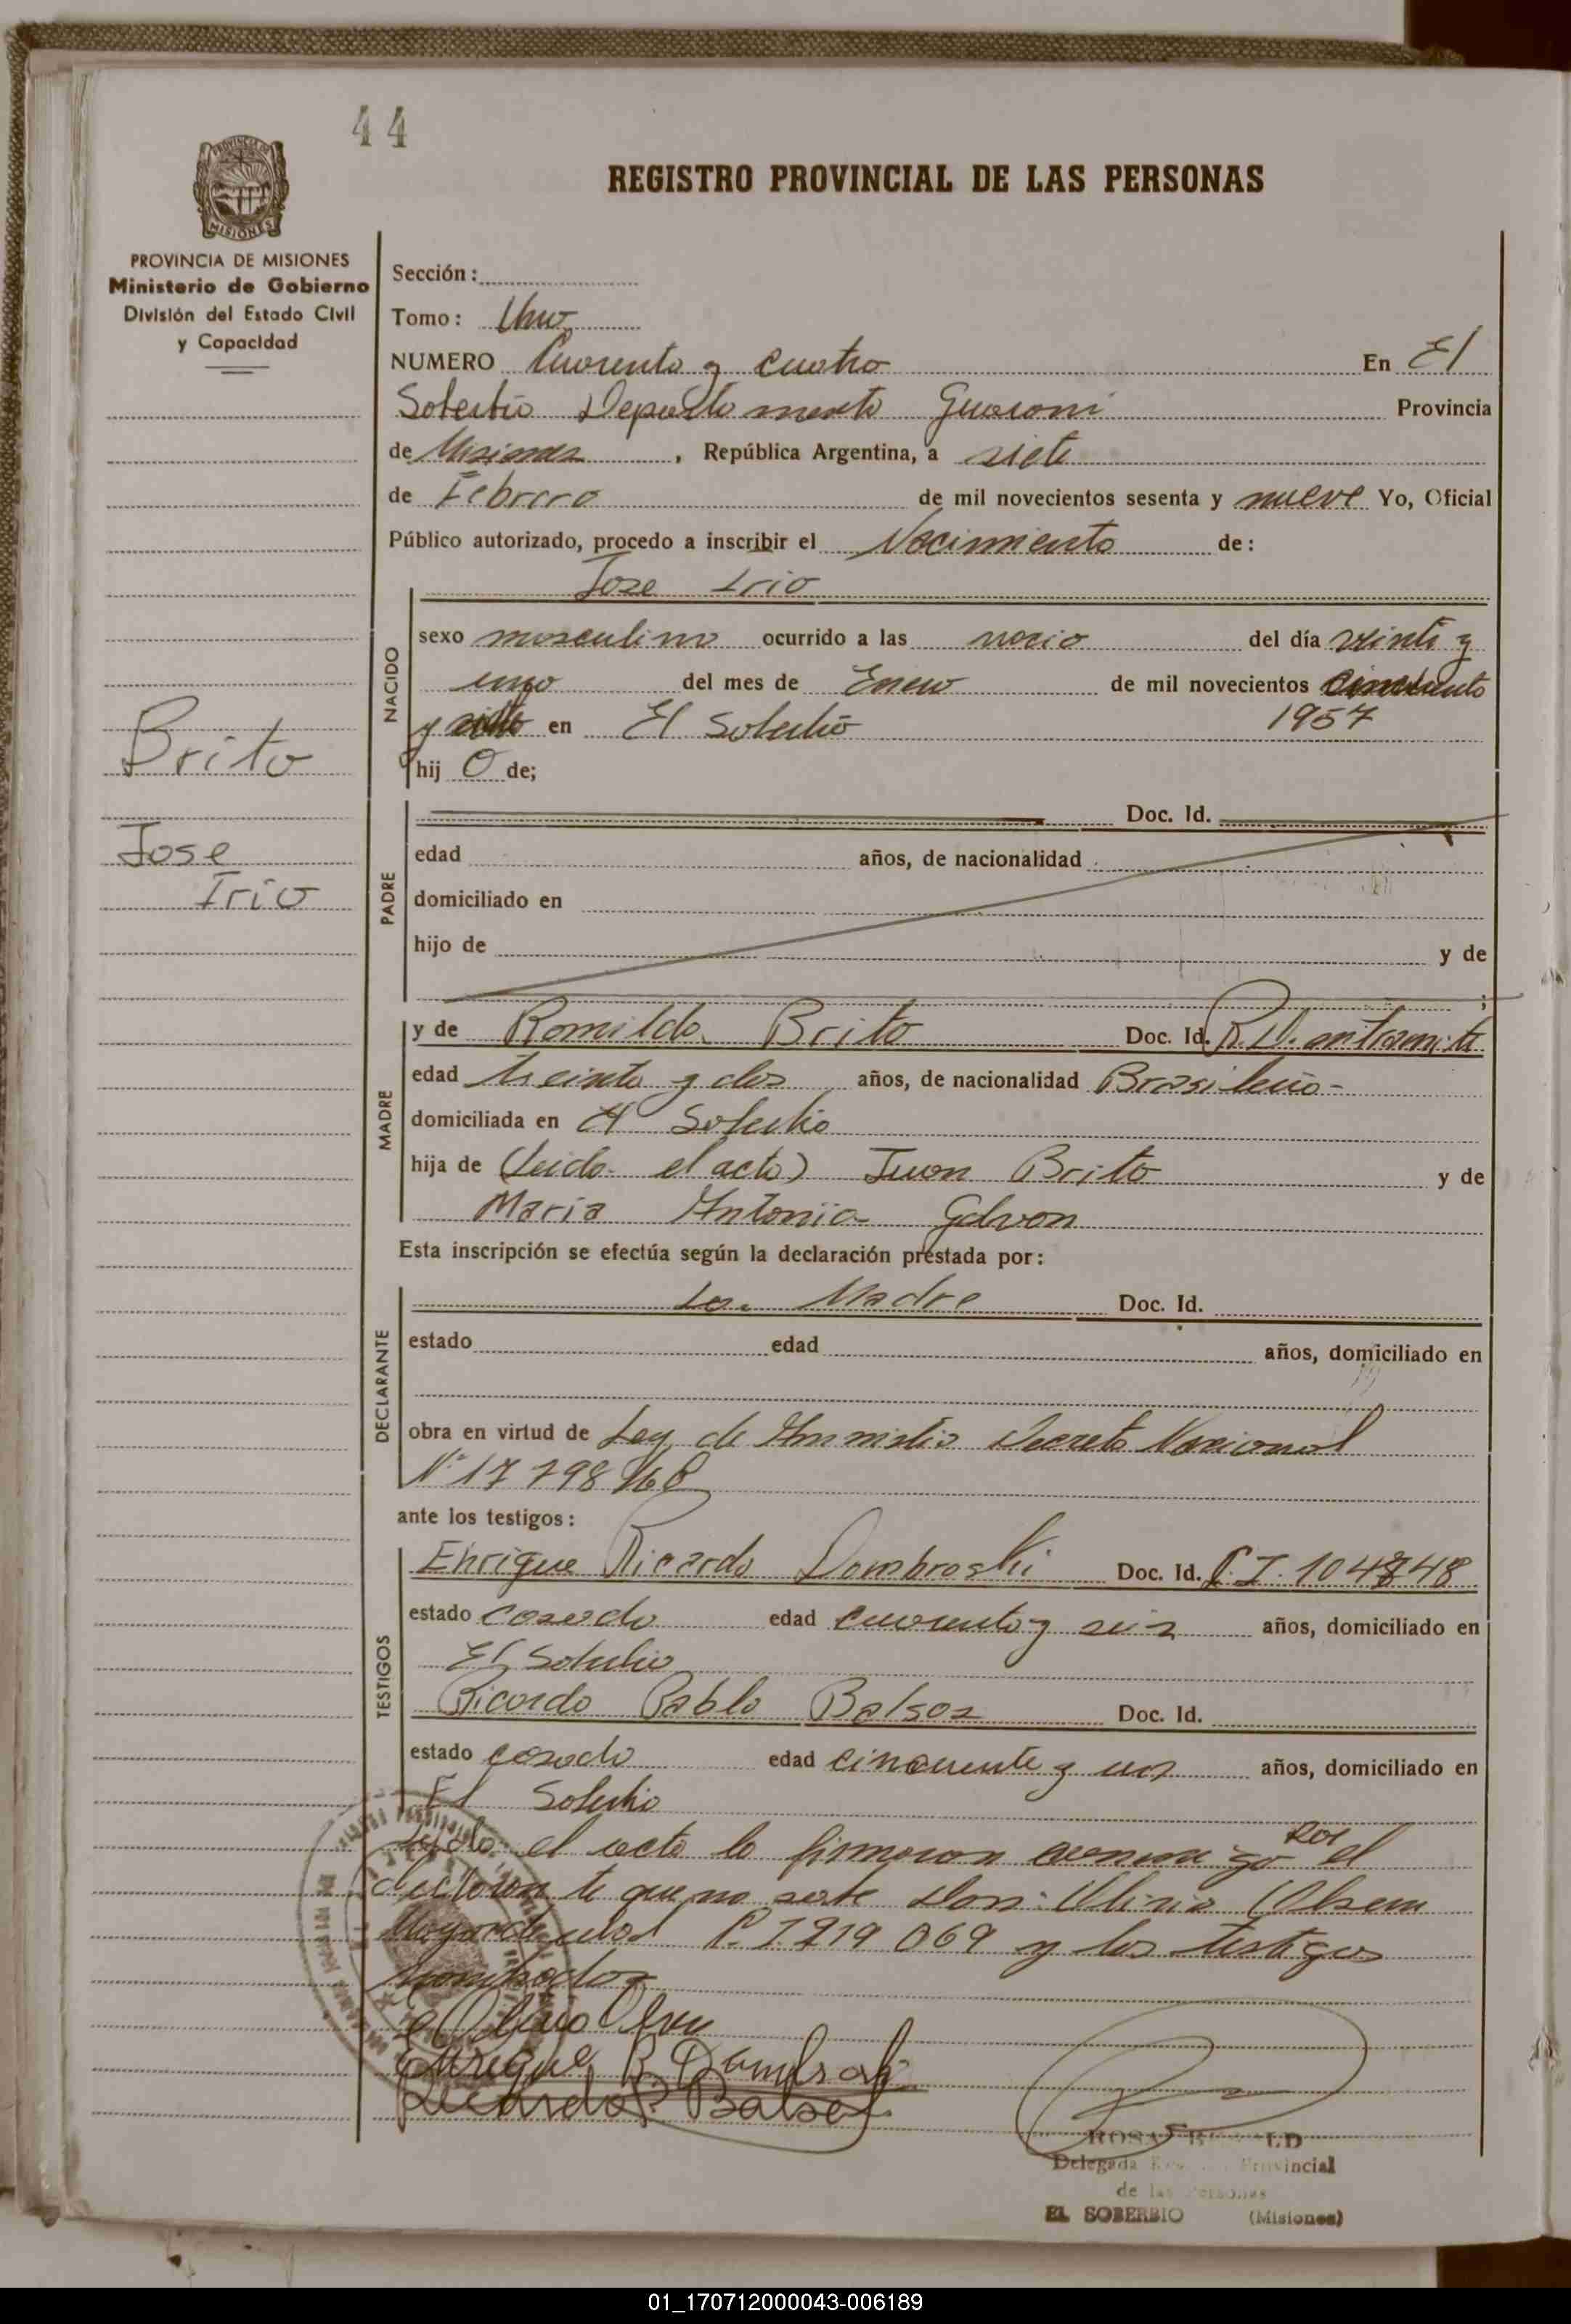 44
PROVINCIA DE MISIONES
Ministerio de Gobierno
División del Estado Civil
y Capacidad
REGISTRO PROVINCIAL DE LAS PERSONAS
Sección:
Tomo: Uno
NUMERO Cuarenta y cuatro En El
Soberbio Departamento Guarani Provincia
de Misiones, República Argentina, a siete
de Febrero de mil novecientos sesenta y nueve Yo, Oficial
Público autorizado, procedo a inscribir el Nacimiento de:
Jose Irio
NACIDO
sexo masculino ocurrido a las nacio del día veinti y
uno del mes de Enero de mil novecientos cincuenta
y siete en El Soberbio 1957
hij O de;
Brito
Jose
Irio
PADRE
Doc. Id.
edad años, de nacionalidad
domiciliado en
hijo de y de
;
MADRE
y de Romilda Brito Doc. Id. R.D. en tramite
edad treinta y dos años, de nacionalidad Brasileña-
domiciliada en El Soberbio
hija de (Leida el acta) Juan Brito y de
Maria Antonia Galvan
Esta inscripción se efectúa según la declaración prestada por:
DECLARANTE
La Madre Doc. Id.
estado edad años, domiciliado en
obra en virtud de Ley de Amnistia Decreto Nacional
Nº 17798/68
ante los testigos:
TESTIGOS
Enrique Ricardo Dombroski Doc. Id. C.I. 104848
estado casado edad cuarenta y seis años, domiciliado en
El Soberbio
Ricardo Pablo Balsas Doc. Id.
estado casado edad cincuenta y un años, domiciliado en
El Soberbio
Leida el acta la firmaron conmigo por el
declarante que no sabe Don: Olinio
C.I 219 069 y los testigos
nombrados
Enrique R. Dombroski
Ricardo P. Balsa
ROSA
Delegada Provincial
de las Personas
EL SOBERBIO (Misiones)
01_170712000043-006189